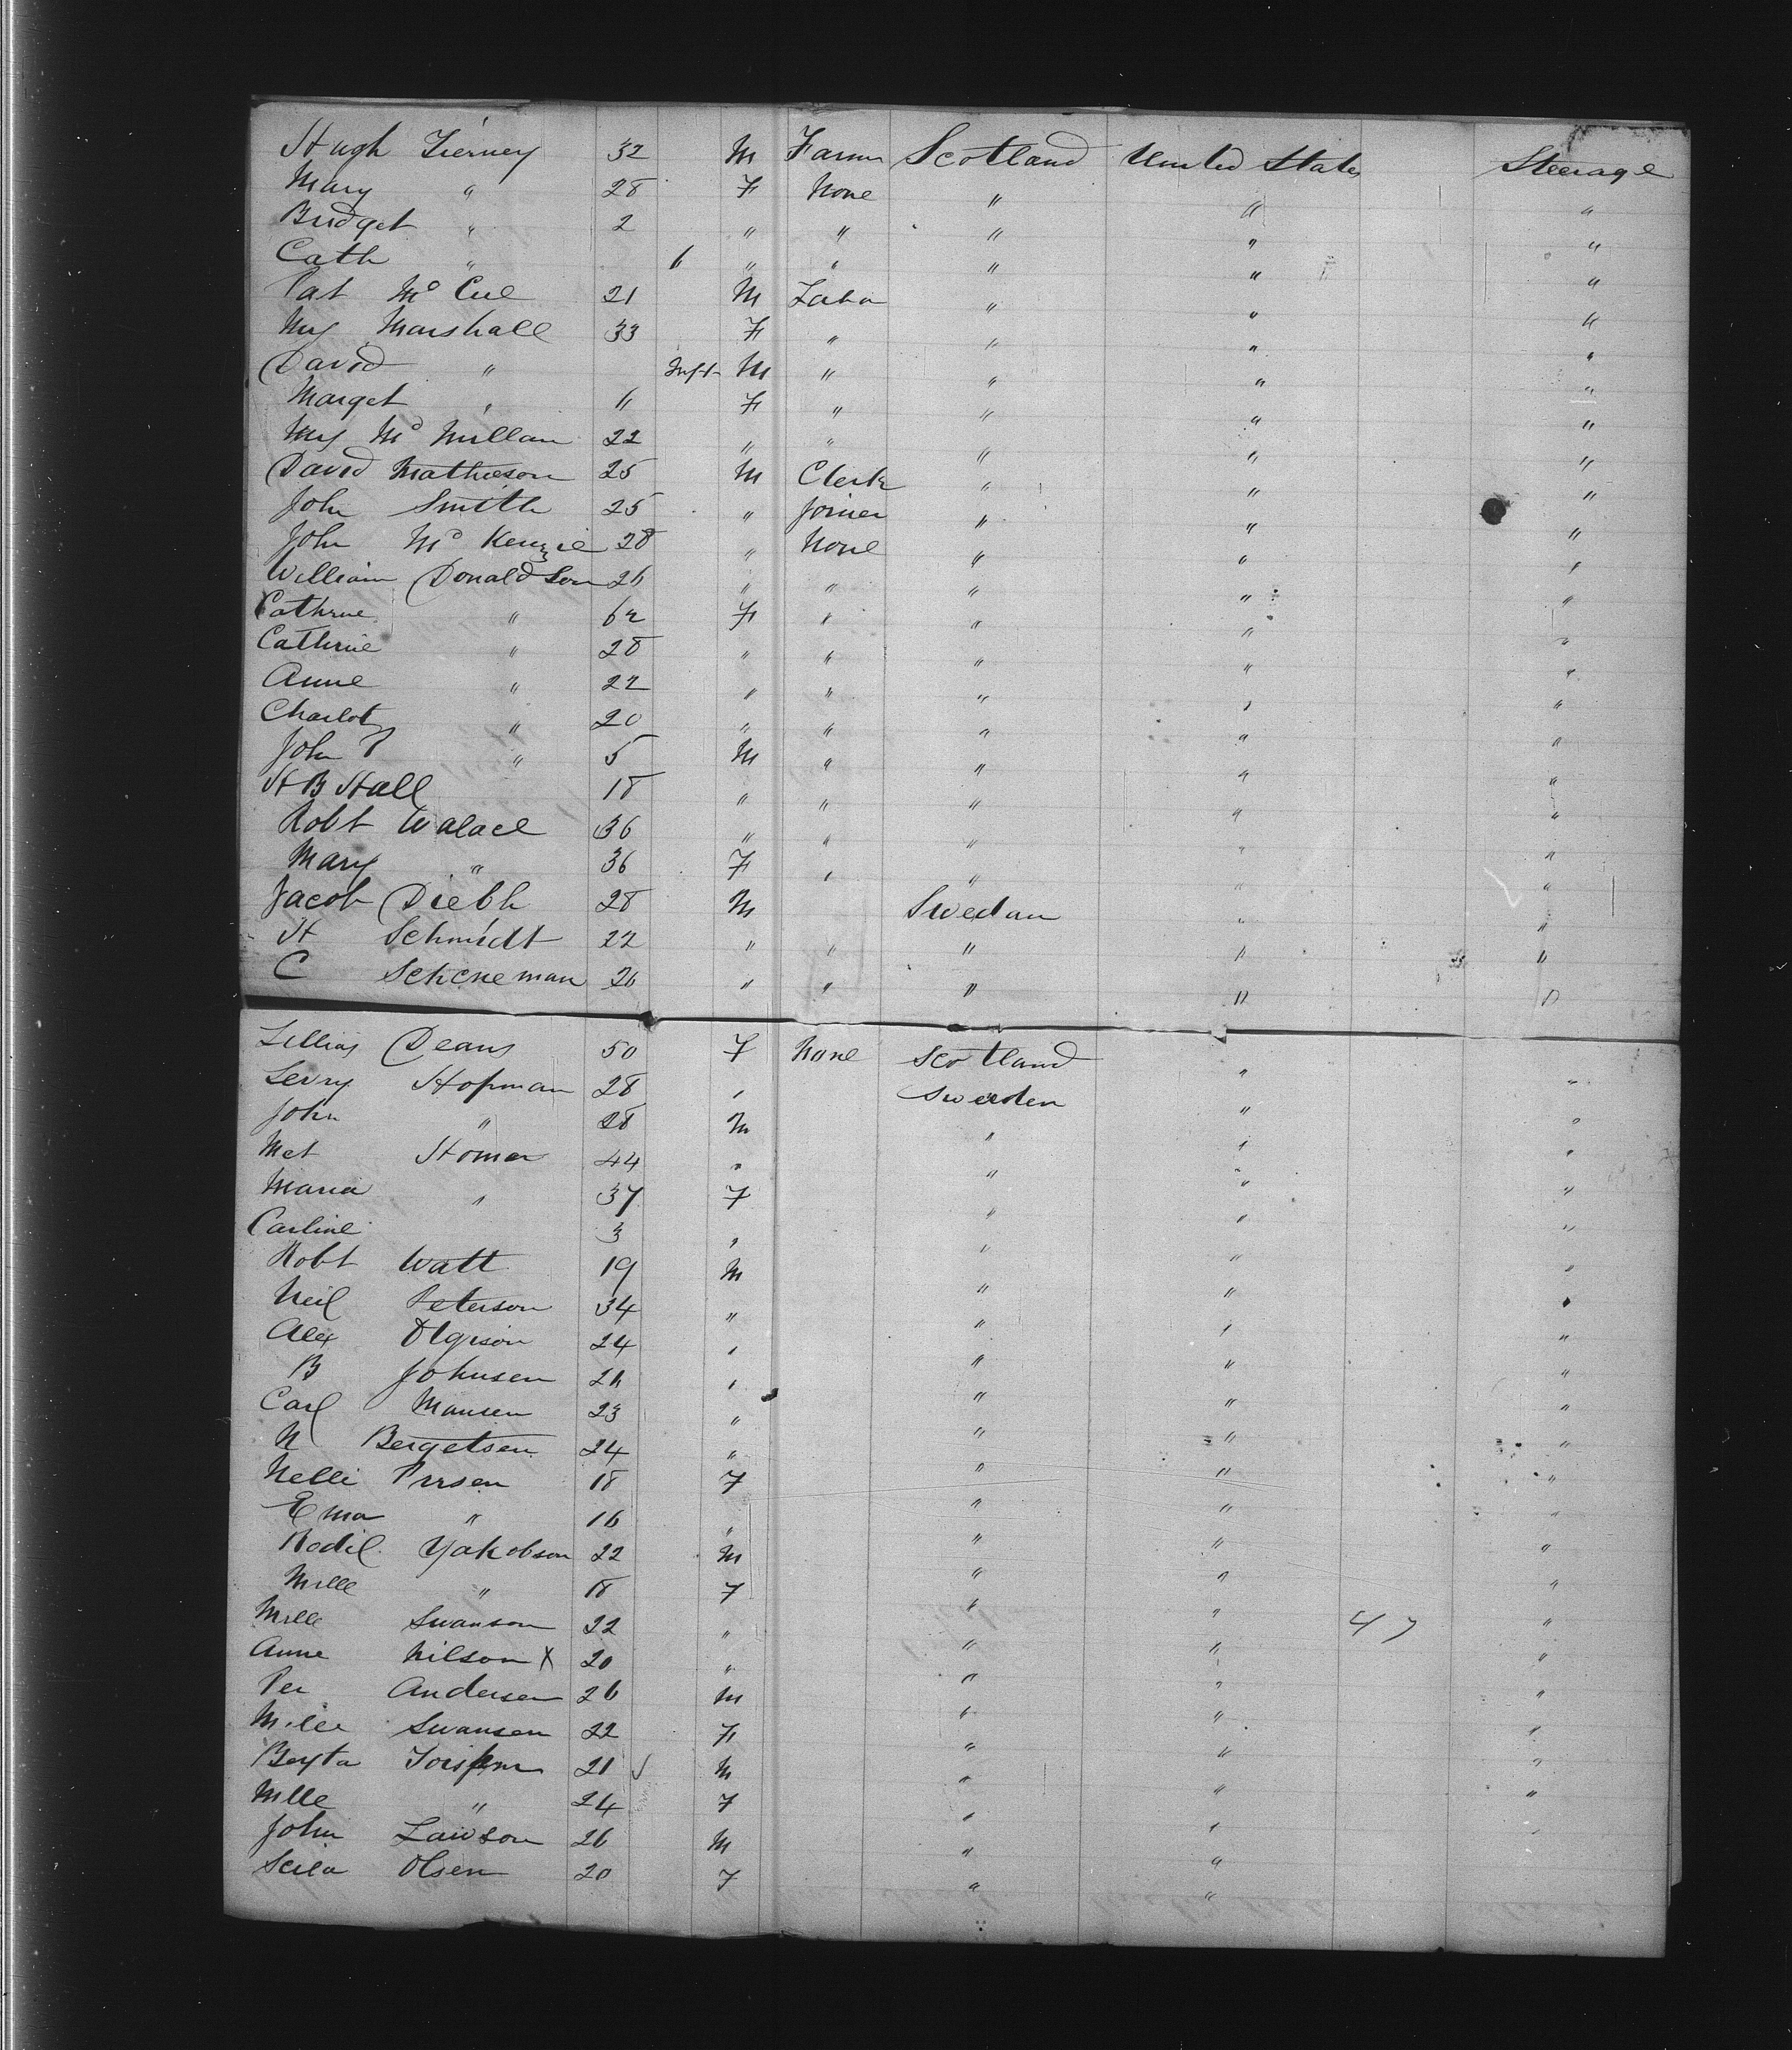 Hugh Tierney 32 M Farmr Scotland United States Steerage
Mary " 28 F None " " "
Bridget " 2 " " " " "
Cath " 6 " " " " "
Pat McCue 21 M Labor " " "
Mrs Marshall 33 F " " " "
David " Inft M " " " "
Marget " 11 F " " " "
Mrs McMillan 22 " " " " "
David Mathieson 25 M Clerk " " "
John Smith 25 " Joiner " " "
John McKenzie 28 " None " " "
William Donaldson 26 " " " " "
Cathrine " 62 F " " " "
Cathrine " 28 " " " " "
Anne " 22 " " " " "
Charlot " 20 " " " " "
John P " 5 M " " " "
H B Hall 18 " " " " "
Robt Walace 36 " " " " "
Mary " 36 F " " " "
Jacob Diebh 28 M Swedan " "
H Schmidt 22 " " " " "
C Scheneman 26 " " " " "
Lillias Deans 50 F None Scotland " "
Levry Hopman 28 " Sweeden " "
John " 28 M " " "
Met Homer 44 " " " "
Maria " 37 F " " "
Carline 3 " " " "
Robt Watt 19 M " " "
Neil Peterson 34 " " " "
Alex Olgison 24 " " " "
B Johnsen 26 " " " "
Carl Mansen 23 " " " "
N Bergetsen 24 " " " "
Nelli Prrsen 18 F " " "
Ema " 16 " " " "
Bodil Yakobson 22 M " " "
Mille " 18 F " " "
Mille Swanson 22 " " " 47 "
Anne Nilson X 20 " " " "
Per Andersen 26 M " " "
Mille Swansen 22 F " " "
Beyta 21 M " " "
Mlle " 24 F " " "
John Lawson 26 M " " "
Seila Olsen 20 F " "